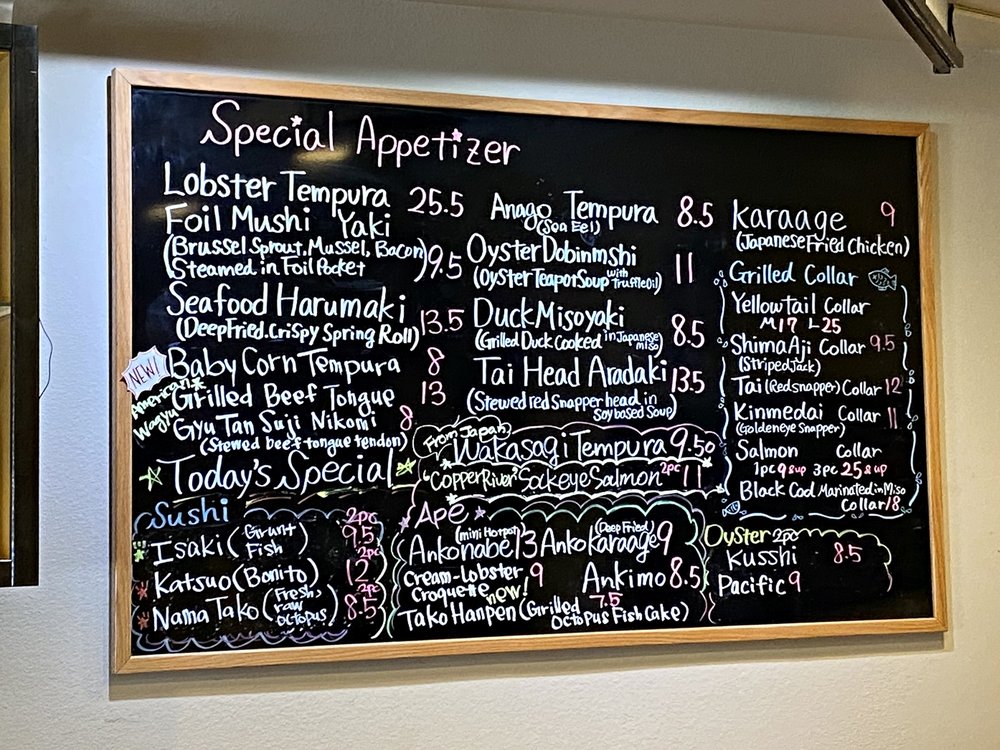 Special Appetizer
Lobster Tempura 25.5
Foil Mushi Yaki
(Brussel Sprout, Mussel, Bacon) 9.5
Steamed in Foil Pocket
Seafood Harumaki
(Deep Fried. Crispy Spring Roll) 13.5
NEW! Baby Corn Tempura 8
American Wagyu
Grilled Beef Tongue 13
Gyu Tan Suji Nikomi 8
(Stewed beef tongue tendon)
Anago Tempura 8.5
(Sea Eel)
Oyster Dobinmshi 11
(Oyster Teapot Soup with Truffle Oil)
Duck Misoyaki 8.5
(Grilled Duck Cooked in Japanese miso)
Tai Head Aradaki 13.5
(Stewed red Snapper head in
Soy based Soup)
Karaage 9
(Japanese Fried Chicken)
Grilled Collar
Yellowtail Collar
M17 L25
Shima Aji Collar 9.5
(Striped Jack)
Tai (Red snapper) Collar 12
Kinmedai Collar 11
(Goldeneye Snapper)
Salmon Collar
1pc 9 & up 3pc 25 & up
Black Cod Marinated in Miso
Collar 18
Today's Special
From Japan
Wakasagi Tempura 9.50
"Copper River" Sockeye Salmon 2pc 11
Sushi
2pc
Isaki (Grunt Fish) 9.5
2pc
Katsuo (Bonito) 12
2pc
Nama Tako (Fresh, raw octopus) 8.5
Ape
(mini Hotpot) (Deep Fried)
Ankonabe 13 Anko Karaage 9
Cream-Lobster Croquette 9 Ankimo 8.5
new! 7.5
Tako Hanpen (Grilled Octopus Fish Cake)
Oyster 2pc
Kusshi 8.5
Pacific 9